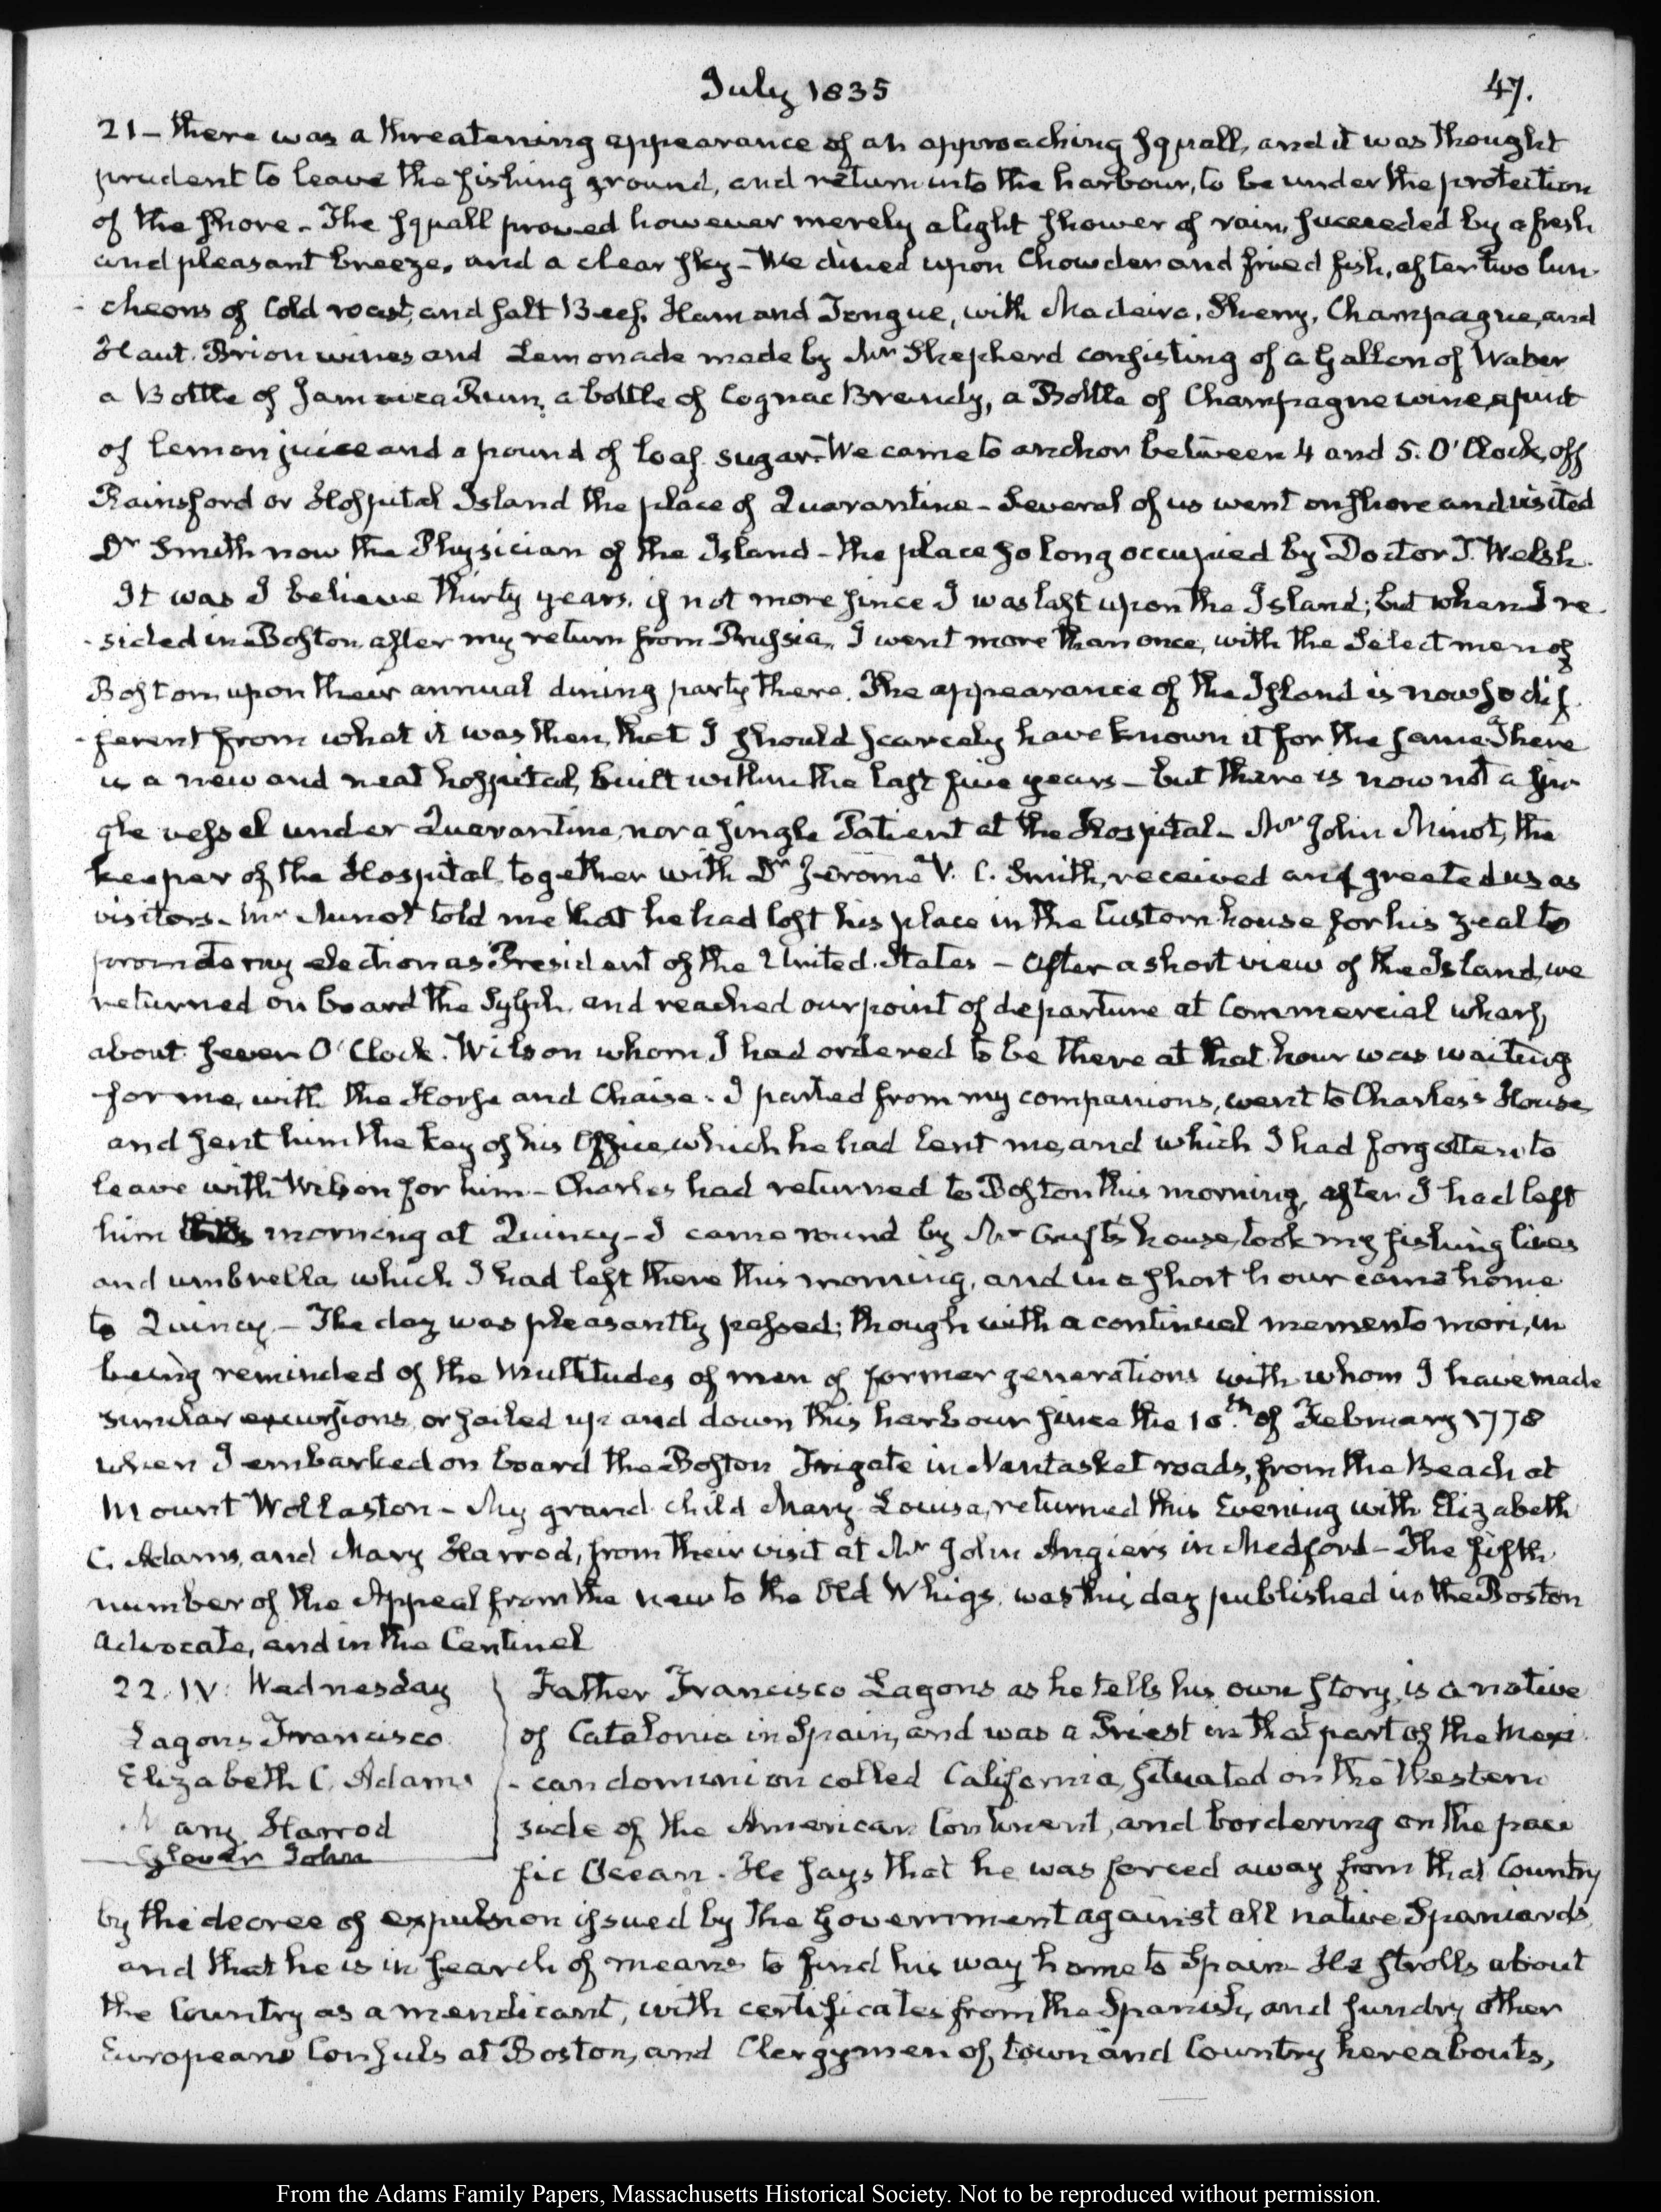 July 1835
47.
21 - there was a threatening appearance of an approaching squall, and it was thought
prudent to leave the fishing ground, and return into the harbour, to be under the protection
of the shore - The squall proved however merely a light shower of rain, succeeded by a fresh
and pleasant breeze, and a clear sky - We dined upon Chowder and fried fish, after two lun-
-cheons of Cold roast, and salt Beef, Ham and Tongue, with Madeira, Sherry, Champagne, and
Haut. Brion wines and Lemonade made by Mr Shepherd consisting of a Gallon of Water
a Bottle of Jamaica Rum, a bottle of Cognac Brandy, a Bottle of Champagne wine, a pint
of lemon juice and a pound of loaf sugar. We came to anchor between 4 and 5. O'Clock, off
Rainsford or Hospital Island the place of Quarantine - Several of us went on shore and visited
Dr Smith now the Physician of the Island - the place so long occupied by Doctor T. Welsh.
It was I believe thirty years, if not more since I was last upon the Island; but when I re-
-sided in Boston, after my return from Prussia, I went more than once, with the Select men of
Boston, upon their annual dining party there. The appearance of the Island is now so dif-
-ferent from what it was then, that I should scarcely have known it for the same. There
is a new and neat hospital, built within the last five years - but there is now not a sin-
gle vessel under Quarantine, nor a single Patient at the Hospital - Mr John Minot, the
keeper of the Hospital, together with Dr Jerome V. C. Smith, received and greeted us as
visitors - Mr Minot told me that he had lost his place in the Custom house for his zeal to
promote my election as President of the United States - After a short view of the Island, we
returned on board the Sylph, and reached our point of departure at Commercial wharf,
about seven O'Clock. Wilson whom I had ordered to be there at that hour was waiting
for me, with the Horse and Chaise. I parted from my companions, went to Charles's House,
and sent him the key of his Office, which he had lent me, and which I had forgotten to
leave with Wilson for him - Charles had returned to Boston this morning, after I had left
him morning at Quincy - I came round by Mr Cruft's house, took my fishing lines
and umbrella, which I had left there this morning, and in a short hour came home
to Quincy. - The day was pleasantly passed; though with a continual memento mori, in
being reminded of the multitudes of men of former generations with whom I have made
similar excursions, or sailed up and down this harbour since the 10th. of February 1778
when I embarked on board the Boston Frigate in Nantasket roads, from the Beach at
Mount Wollaston - My grand child Mary Louisa, returned this Evening with Elizabeth
C. Adams, and Mary Harrod, from their visit at Mr John Angier's in Medford - The fifth
number of the Appeal from the new to the Old Whigs, was this day published in the Boston
Advocate, and in the Centinel
22. IV. Wednesday
Lagons Francisco
Elizabeth C. Adams
Mary Harrod
Glover John
Father Francisco Lagons as he tells his own story, is a native
of Catalonia in Spain, and was a Priest in that part of the Mexi-
-can dominion called California, situated on the Western
side of the American Continent, and bordering on the paci
fic Ocean - He says that he was forced away from that Country
by the decree of expulsion issued by the Government against all native Spaniards,
and that he is in search of means to find his way home to Spain - He strolls about
the Country as a mendicant, with certificates from the Spanish, and sundry other
European Consuls at Boston, and Clergymen of, town and Country hereabouts,
From the Adams Family Papers, Massachusetts Historical Society. Not to be reproduced without permission.